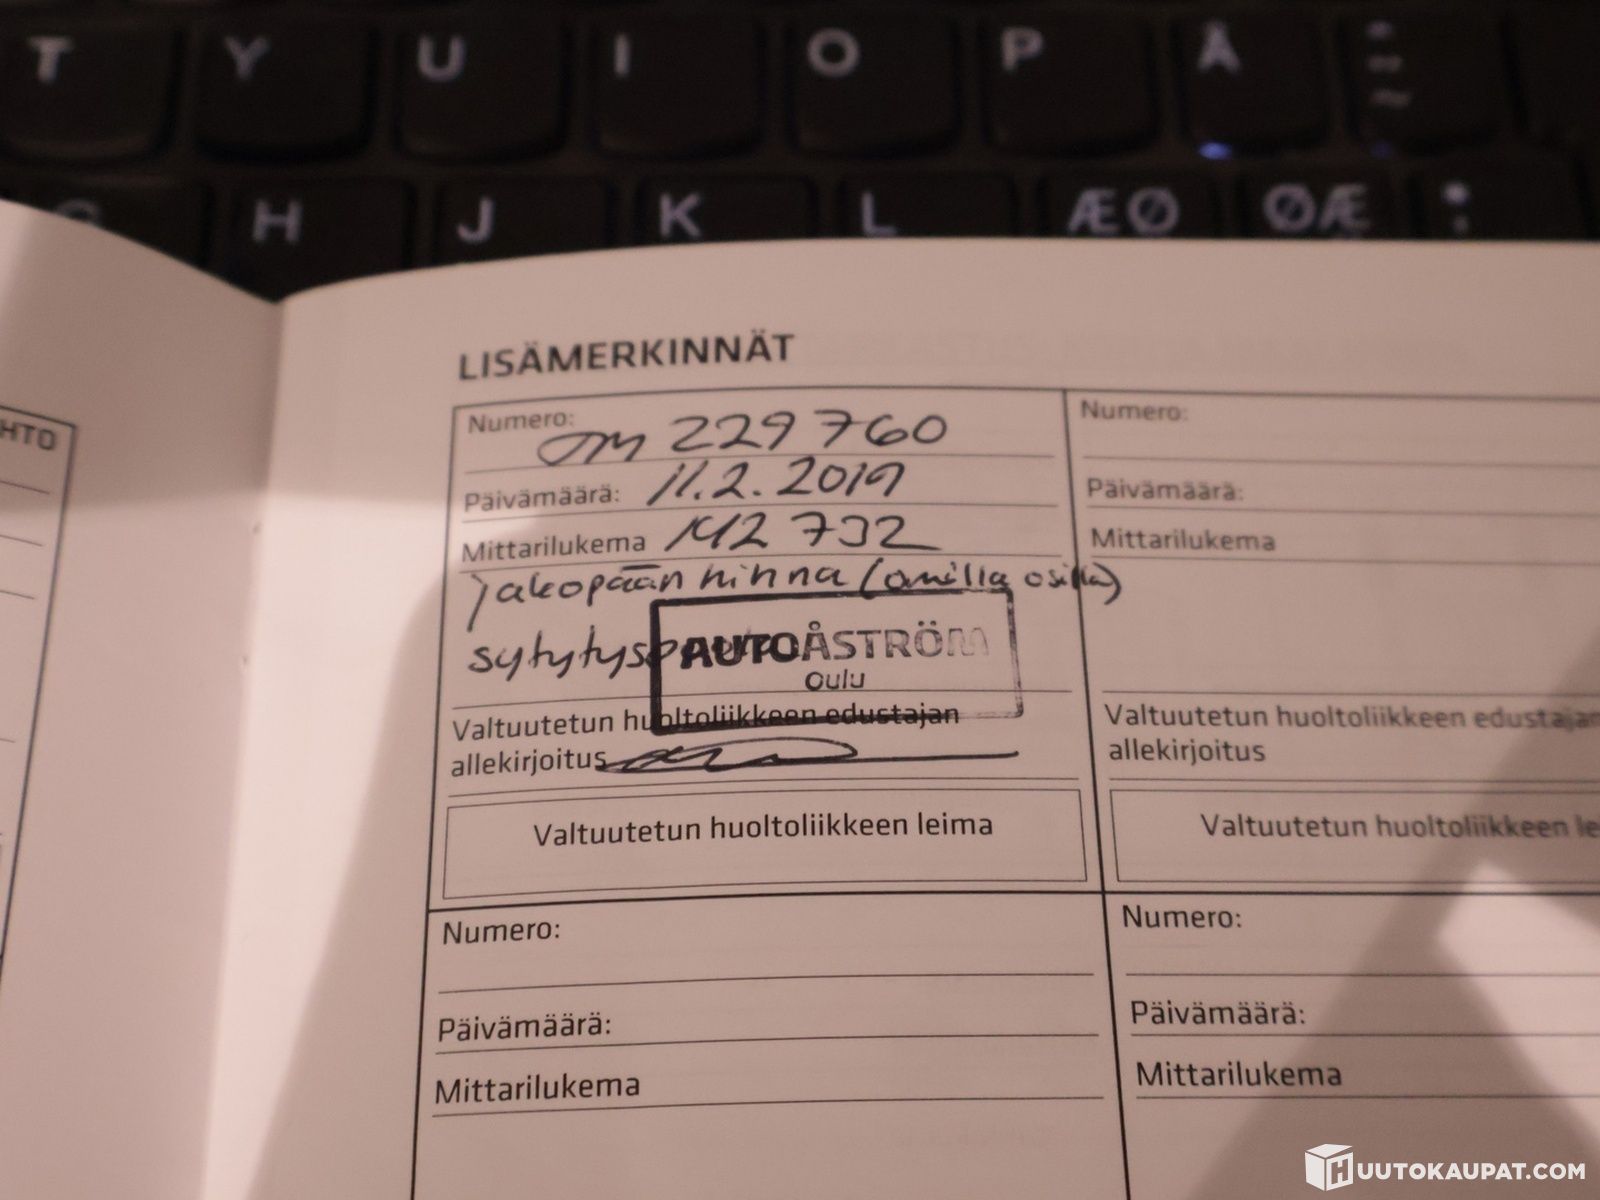 T Y U I O P Å
G H J K L ÆØ ØÆ
HTO
LISÄMERKINNÄT
Numero: 229760
Päivämäärä: 11.2.2019
Mittarilukema 142 732
jakopään hihna (omilla osilla)
AUTOÅSTRÖM
Oulu
Valtuutetun huoltoliikkeen edustajan
allekirjoitus
Valtuutetun huoltoliikkeen leima
Numero:
Päivämäärä:
Mittarilukema
Valtuutetun huoltoliikkeen edustajan
allekirjoitus
Valtuutetun huoltoliikkeen le
Numero:
Päivämäärä:
Mittarilukema
Numero:
Päivämäärä:
Mittarilukema
HUUTOKAUPAT.COM